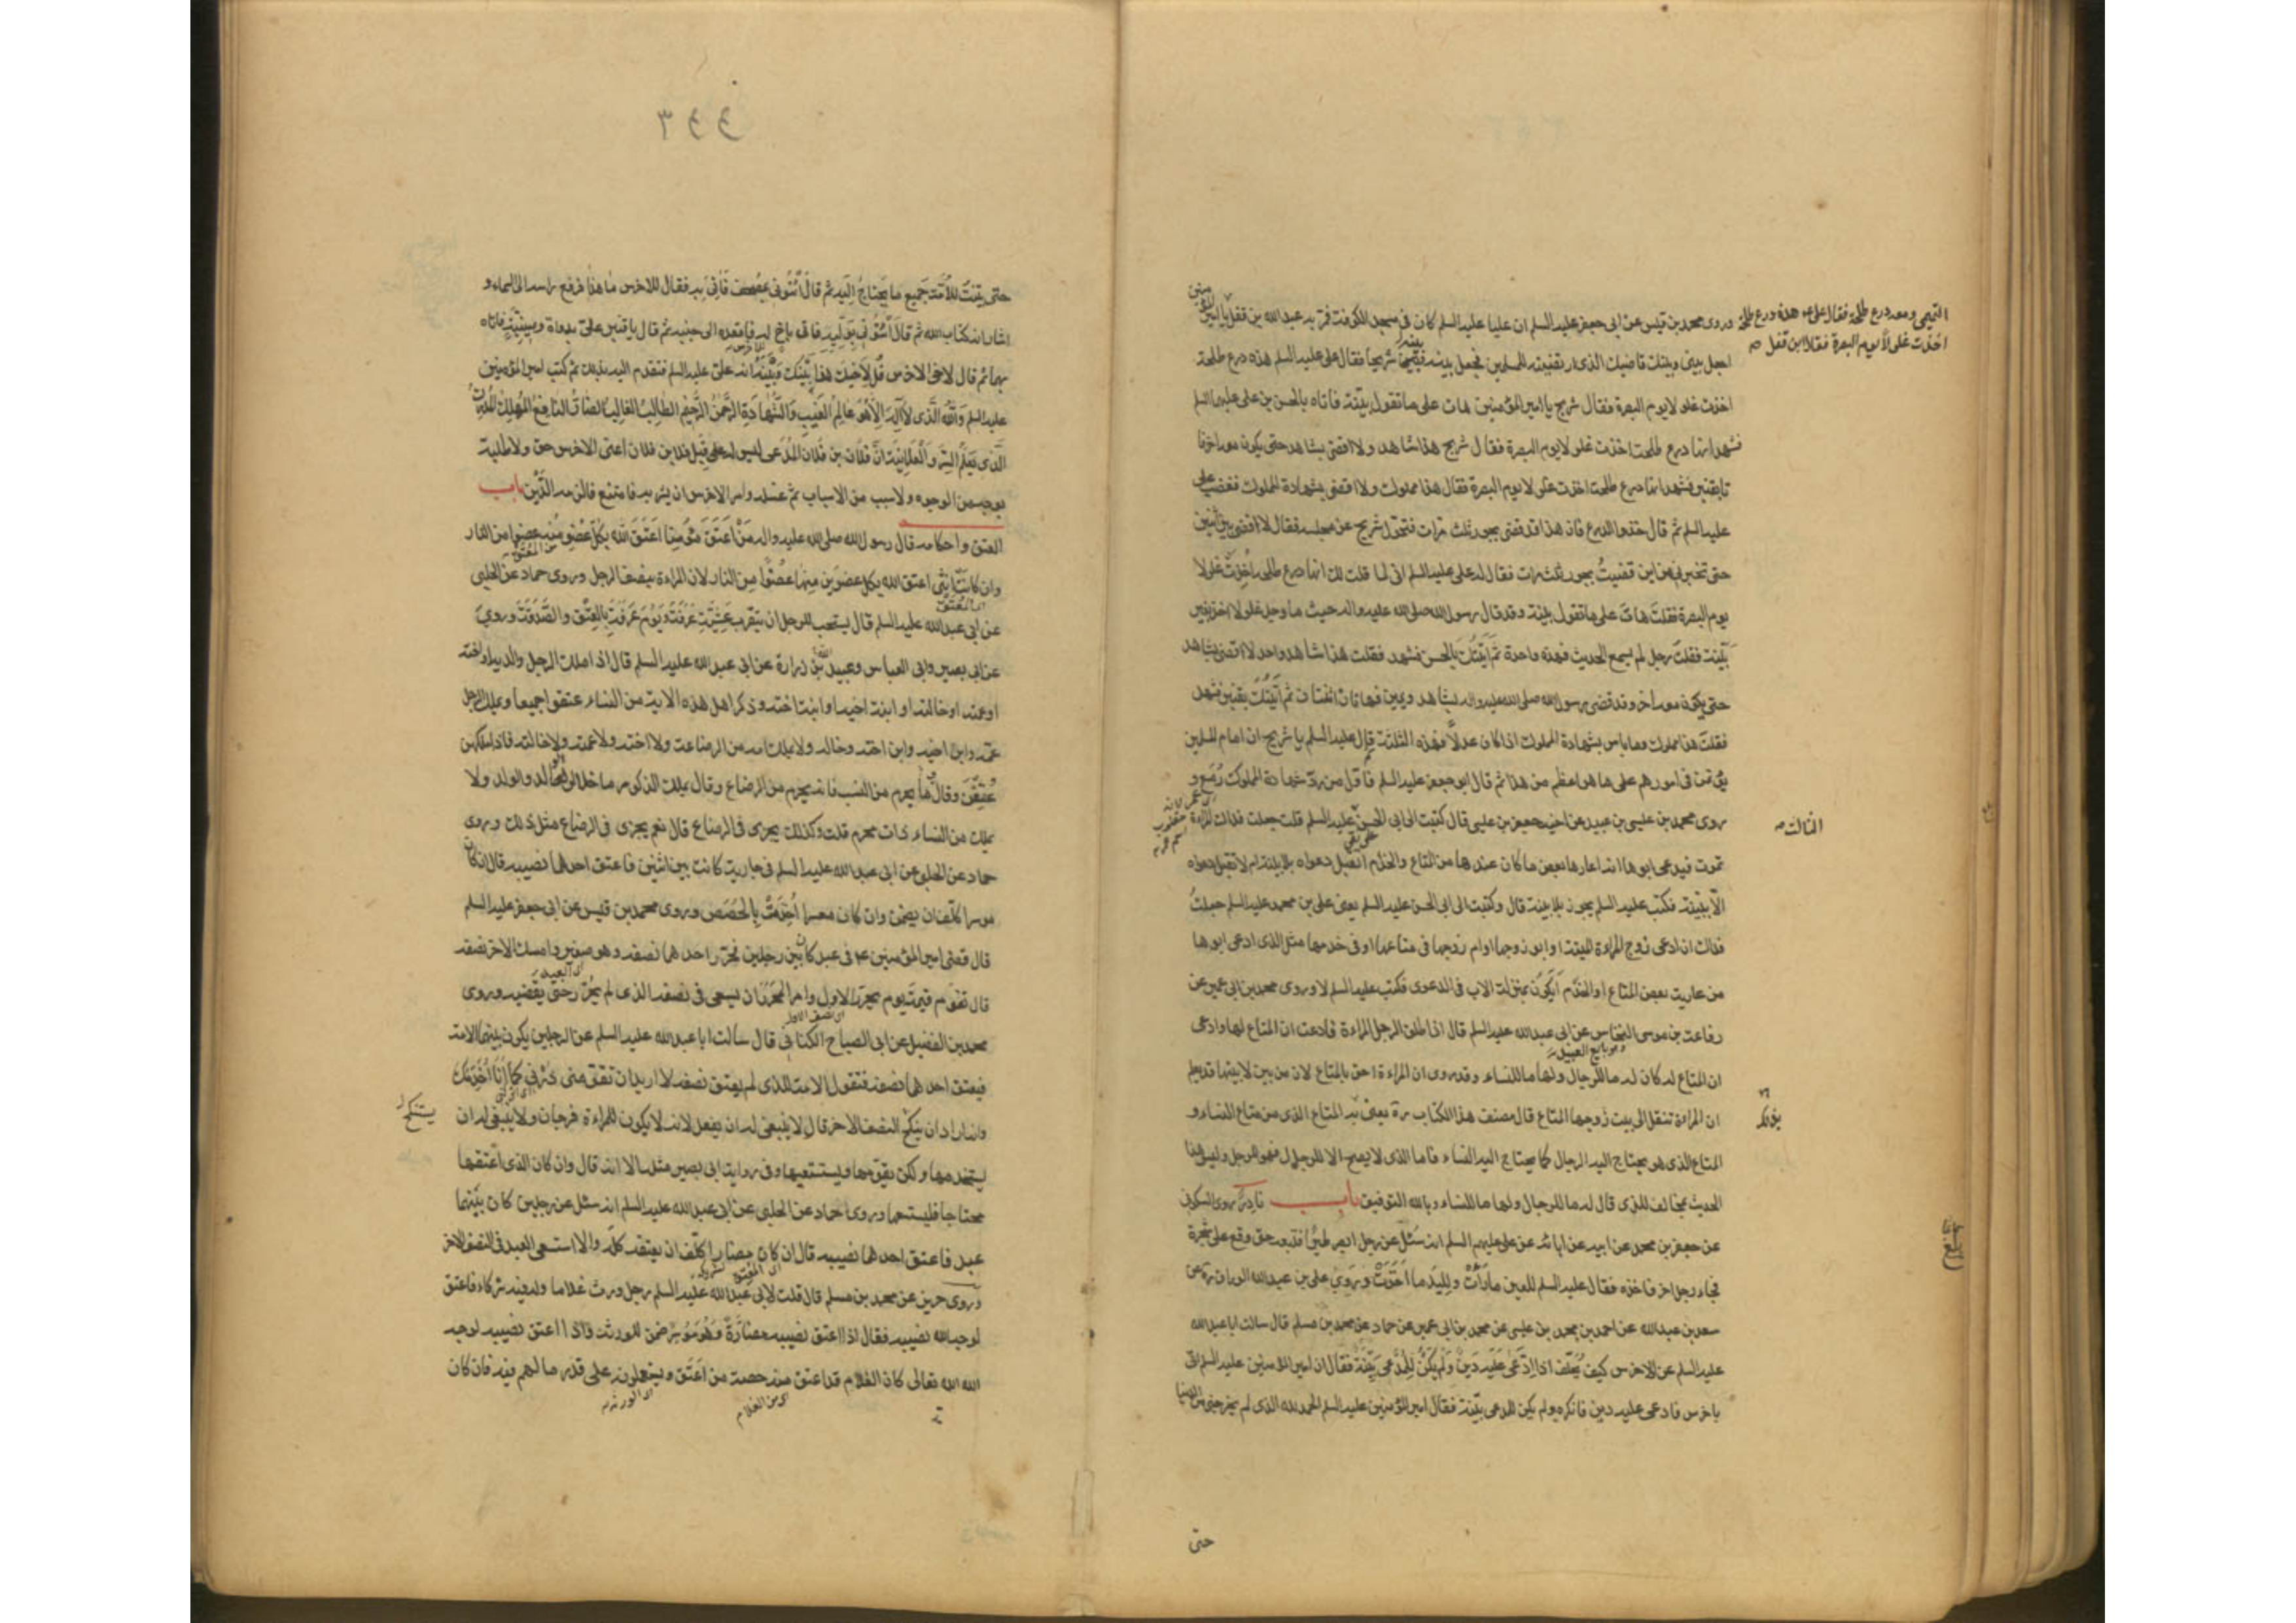 وروى محمد بن قيس عن ابى جعفر عليه السلم ان عليا عليه السلم كان فى مسجد الكوفة فمر به عبد الله بن قفل
التيمى ومعه درع طلحة فقال على ع هذه درع طلحة
اخذت غلولا يوم البصرة فقال ابن قفل
يا امير المؤمنين
اجعل بينى وبينك قاضيك الذى ارتضيته للمسلمين فجعل بينه وبينه شريحا فقال على عليه السلم هذه درع طلحة
اخذت غلولا يوم البصرة فقال شريح يا امير المؤمنين هات على ما تقول بينة فاتاه بالحسن بن على عليهما السلم
فشهد انها درع طلحة اخذت غلولا يوم البصرة فقال شريح هذا شاهد ولا اقضى بشاهد حتى يكون معه اخر فا
تا بقنبر فشهد انها درع طلحة اخذت غلولا يوم البصرة فقال هذا مملوك ولا اقضى بشهادة المملوك فغضب على
عليه السلم ثم قال خذوا الدرع فان هذا قد قضى بجور ثلث مرات فتحول شريح عن مجلسه فقال لا اقضى بين اثنين
حتى تخبرنى من اين قضيت بجور ثلث مرات فقال له على عليه السلم انى لما قلت لك انها درع طلحة اخذت غلولا
يوم البصرة فقلت هات على ما تقول بينة وقد قال رسول الله صلى الله عليه واله حيث ما وجد غلول اخذ بغير
بينة فقلت رجل لم يسمع الحديث فهذه واحدة ثم اتيتك بالحسن فشهد فقلت هذا شاهد واحد لا اقضى بشاهد
حتى يكون معه اخر وقد قضى رسول الله صلى الله عليه واله بشاهد ويمين فهاتان اثنتان ثم اتيتك بقنبر فشهد
فقلت هذا مملوك وما باس بشهادة المملوك اذا كان عدلا فهذه الثلثة ثم قال عليه السلم يا شريح ان امام المسلمين
يؤتمن فى امورهم على ما هو اعظم من هذا ثم قال ابو جعفر عليه السلم فاول من رد شهادة المملوك رمع و
روى محمد بن عيسى بن عبيد عن اخيه جعفر بن عيسى قال كتبت الى ابى الحسن عليه السلم قلت جعلت فداك المراءة
الثالث
تموت فيدعى ابوها انه اعارها بعض ما كان عندها من المتاع والخدم اتقبل دعواه بلا بينة ام لا تقبل دعواه
الا ببينة فكتب عليه السلم يجوز بلا بينة قال وكتبت الى ابى الحسن عليه السلم يعنى على بن محمد عليه السلم جعلت
فداك ان ادعى زوج المراءة الميتة او ابو زوجها او ام زوجها فى متاعها او فى خدمها مثل الذى ادعى ابوها
من عارية بعض المتاع او الخدم ايكون بمنزلة الاب فى الدعوى فكتب عليه السلم لا وروى محمد بن ابى عمير عن
رفاعة بن موسى النخاس عن ابى عبد الله عليه السلم قال اذا طلق الرجل المراءة فادعت ان المتاع لها وادعى
وهو بايع العبيد
ان المتاع له كان له ما للرجال ولها ما للنساء وقد روى ان المراءة احق بالمتاع لان من بين لابيتها قد يعلم
ان المراءة تنقل الى بيت زوجها المتاع قال مصنف هذا الكتاب ره يعنى بذلك المتاع الذى من متاع النساء و
المتاع الذى هو يحتاج اليه الرجال كما يحتاج اليه النساء فاما الذى لا يصلح الا للرجال فهو للرجل وليس هذا
الحديث بمخالف للذى قال له ما للرجال ولها ما للنساء وبالله التوفيق باب نادر روى السكونى
عن جعفر بن محمد عن ابيه عن ابائه عن على عليهم السلم انه سئل عن رجل ابصر طيرا فتبعه حتى وقع على شجرة
فجاء رجل اخر فاخذه فقال عليه السلم للعين ما رات ولليد ما اخذت وروى على بن عبد الله الوراق ره عن
سعد بن عبد الله عن احمد بن محمد بن عيسى عن محمد بن ابى عمير عن حماد عن محمد بن مسلم قال سالت ابا عبد الله
عليه السلم عن الاخرس كيف يحلف اذا ادعى عليه دين ولم يكن للمدعى بينة فقال ان امير المؤمنين عليه السلم اتى
باخرس فادعى عليه دين فانكره ولم يكن للمدعى بينة فقال امير المؤمنين عليه السلم الحمد لله الذى لم يخرجنى من الدنيا
حتى
٣٤٤
حتى بينت للامة جميع ما يحتاج اليه ثم قال ائتونى بمصحف فاتى به فقال للاخرس ما هذا فرفع راسه الى السماء و
اشار انه كتاب الله ثم قال ائتونى بوليه فاتى باخ له فاقعده الى جنبه ثم قال يا قنبر على بدواة وصينية فاتاه
بهما ثم قال لاخى الاخرس قل لاخيك هذا بينك وبينه انه على عليه السلم فتقدم اليه بذلك ثم كتب امير المؤمنين
عليه السلم والله الذى لا اله الا هو عالم الغيب والشهادة الرحمن الرحيم الطالب الغالب الضار النافع المهلك المدرك
الذى يعلم السر والعلانية ان فلان بن فلان المدعى ليس له قبل فلان بن فلان اعنى الاخرس حق ولا طلبة
بوجه من الوجوه ولا سبب من الاسباب ثم غسله وامر الاخرس ان يشربه فامتنع فالزمه الدين باب
العتق واحكامه قال رسول الله صلى الله عليه واله من اعتق مؤمنا اعتق الله بكل عضو منه عضوا من النار
وان كانت انثى اعتق الله بكل عضوين منها عضوا من النار لان المراءة بنصف الرجل وروى حماد عن الحلبى
عن ابى عبد الله عليه السلم قال يستحب للرجل ان يتقرب عشية عرفة ويوم عرفة بالعتق والصدقة وروى
عن ابى بصير وابى العباس وعبيد بن زرارة عن ابى عبد الله عليه السلم قال اذا ملك الرجل والديه او اخته
او عمته او خالته او ابنة اخيه او ابنة اخته وذكر اهل هذه الاية من النساء عتقوا جميعا ويملك الرجل
عمه وابن اخيه وابن اخته وخاله ولا يملك امه من الرضاعة ولا اخته ولا عمته ولا خالته فاذا ملكهن
عتقن وقال ما يحرم من النسب فانه يحرم من الرضاع وقال يملك الذكور ما خلا الوالد والولد ولا
يملك من النساء ذات محرم قلت وكذلك يجرى فى الرضاع قال نعم يجرى فى الرضاع مثل ذلك وروى
حماد عن الحلبى عن ابى عبد الله عليه السلم فى جارية كانت بين اثنين فاعتق احدهما نصيبه قال ان كان
موسرا كلف ان يضمن وان كان معسرا اخذمت بالحصص وروى محمد بن قيس عن ابى جعفر عليه السلم
قال قضى امير المؤمنين ع فى عبد كان بين رجلين فحرر احدهما نصفه وهو صغير وامسك الاخر نصفه
قال تقوم قيمة يوم حرر الاول وامر المحرر ان يسعى فى نصفه الذى لم يحرر حتى يقضيه وروى
محمد بن الفضيل عن ابى الصباح الكنانى قال سالت ابا عبد الله عليه السلم عن الرجلين يكون بينهما الامة
فيعتق احدهما نصفه فتقول الامة للذى لم يعتق نصفه لا اريد ان تعتق منى ذرنى كما انا اخدمك
وانه اراد ان ينكح النصف الاخر قال لا ينبغى له ان يفعل لانه لا يكون للمراءة فرجان ولا ينبغى له ان
يستخدمها ولكن يقومها ويستسعيها وفى رواية ابى بصير مثله الا انه قال وان كان الذى اعتقها
محتاجا فليستسعها وروى حماد عن الحلبى عن ابى عبد الله عليه السلم انه سئل عن رجلين كان بينهما
عبد فاعتق احدهما نصيبه قال ان كان مضارا كلف ان يعتقه كله والا استسعى العبد فى النصف الاخر
وروى حريز عن محمد بن مسلم قال قلت لابى عبد الله عليه السلم رجل ورث غلاما وله فيه شركاء فاعتق
لوجه الله نصيبه فقال اذا اعتق نصيبه مضارة وهو موسر ضمن للورثة واذا اعتق نصيبه لوجه
الله تعالى كان الغلام قد اعتق منه حصة من اعتق ويستعملونه على قدر ما لهم فيه فان كان
اى من الغلام
اى الورثة